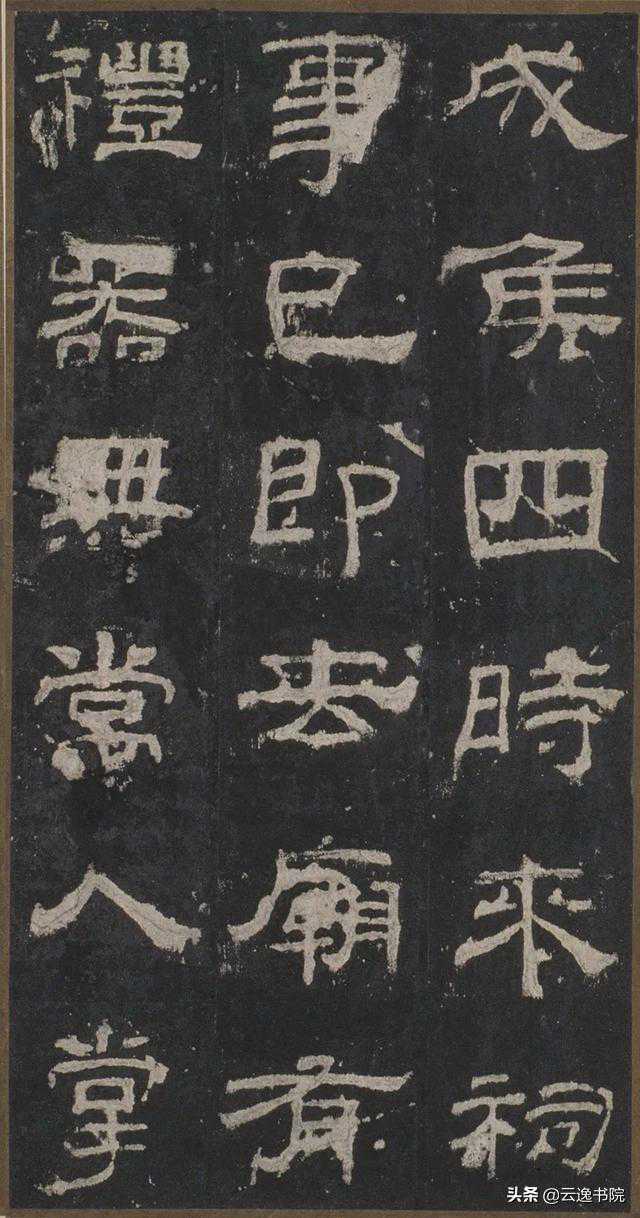 成侯四時來祠
事已即去廟有
禮器無常人掌
头条@云逸书院